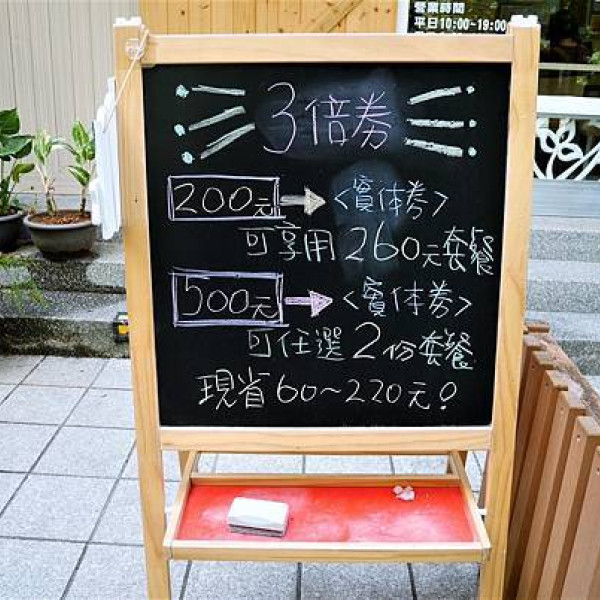 營業時間
平日10:00~19:00
3倍券
200元→<實体券>
可享用260元套餐
500元→<實体券>
可任選2份套餐
現省60~220元!